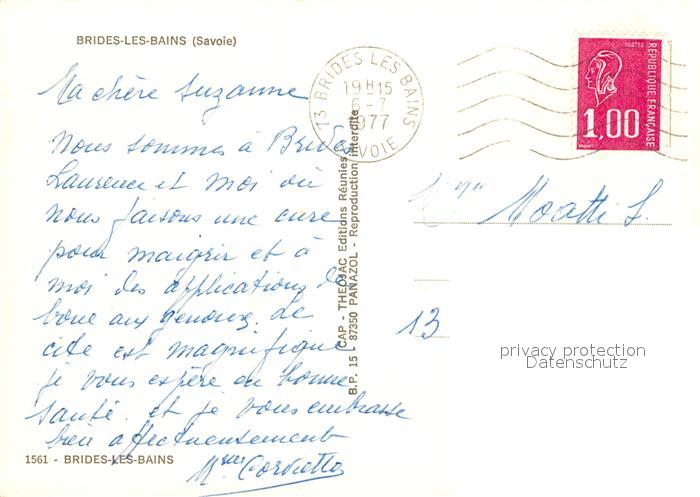 BRIDES-LES-BAINS (Savoie)
Ma chère Suzanne
Nous sommes à Brides
Laurence et moi où
nous faisons une cure
pour maigrir et à
moi des applications de
boue aux genoux. Le
cite est magnifique
je vous espère en bonne
santé et je vous embrasse
bien affectueusement
Mme
1561 - BRIDES-LES-BAINS
B.P. 15 - 87350 PANAZOL - Reproduction interdite
CAP - THEOJAC Editions Réunies
13 BRIDES LES BAINS
19 H 15
6-7
1977
SAVOIE
POSTES
REPUBLIQUE FRANÇAISE
1,00
Moatti S.
13
privacy protection
Datenschutz